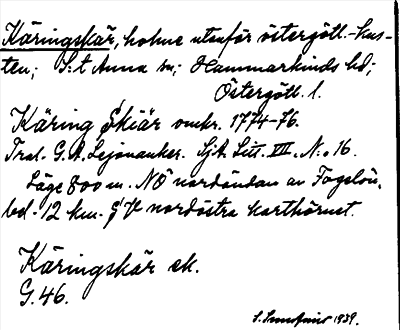 Käringskär, holme utanför östergötl.-kus-
ten; S:t Anna sn; Hammarkinds hd;
Östergötl. l.
Käring Skiär omkr. 1774-76.
Tral. G. A. Lejonanker. Sjk. Litt. VII. N:o 16.
Läge 800 m. NÖ nordändan av Fogelön,
bel. 12 km. SV nordöstra karthörnet.
Käringskär ek.
G. 46.
S. 1939.